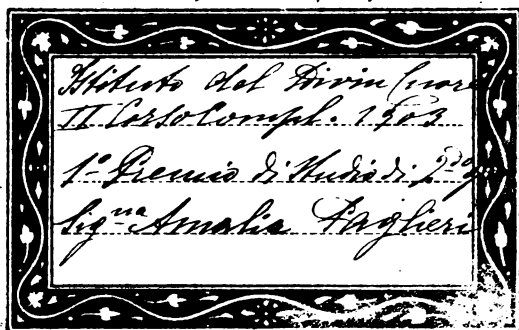 Istituto del Divin Cuore
II Corso Compl. 1903
1º Premio di Studio di 2do g
Signa Amalia Paglieri